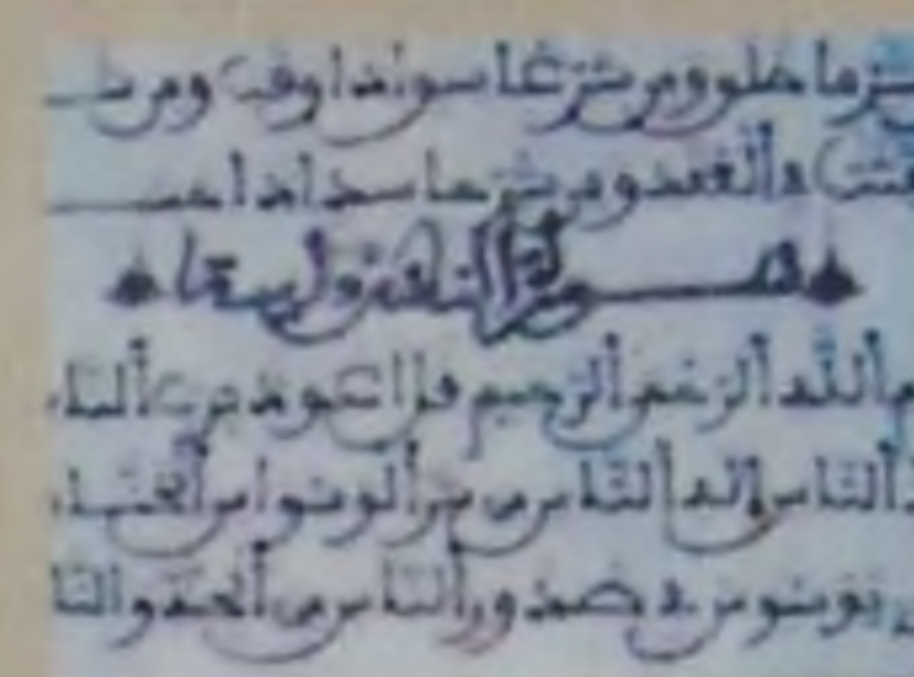 شر ما خلق ومن شر غاسق اذا وقب ومن
في العقد ومن شر حاسد اذا حسد
سورة الناس
الله الرحمن الرحيم قل اعوذ برب الناس
الناس اله الناس من شر الوسواس الخناس
يوسوس في صدور الناس من الجنة والنا